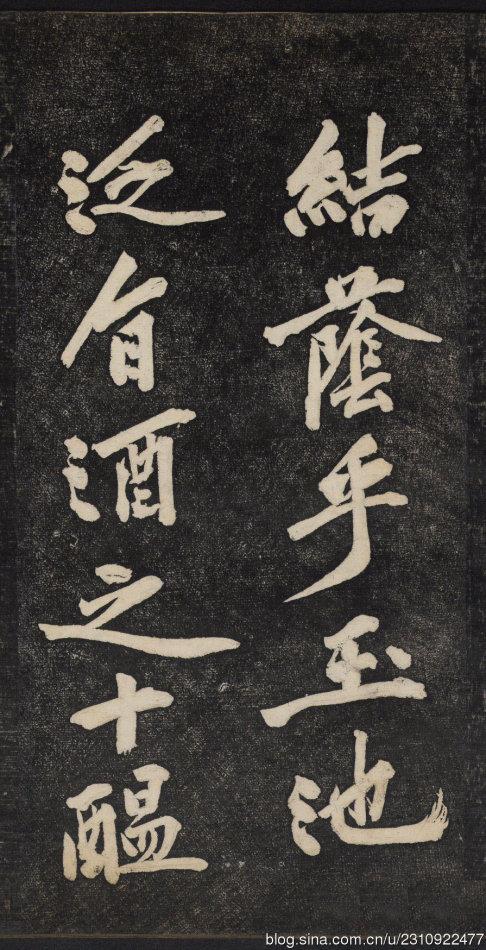 結蔭乎玉池
泛旨酒之十醖
blog.sina.com.cn/u/2310922477